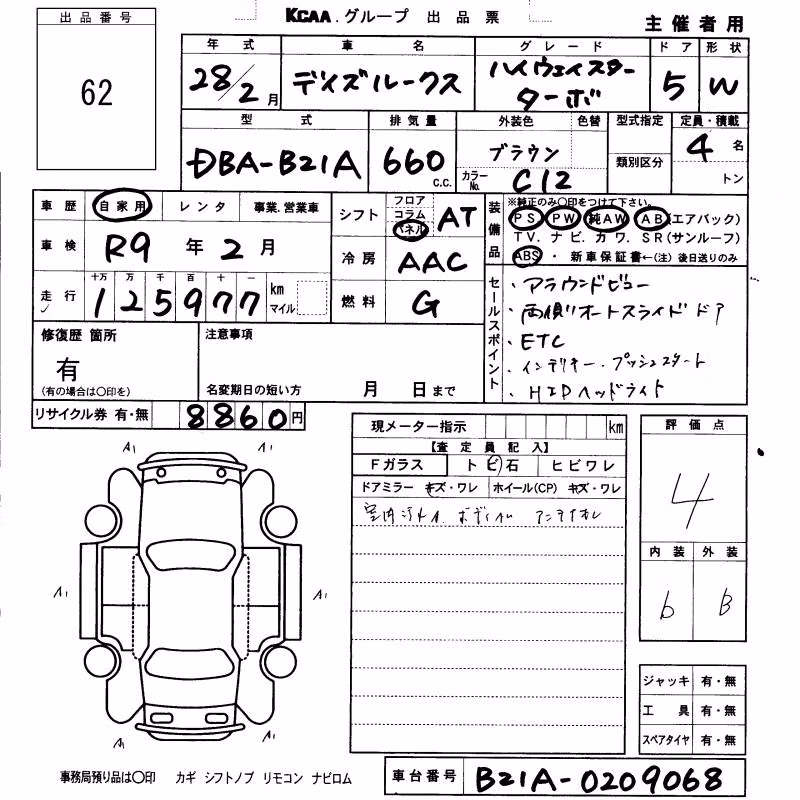 出品番号
62
KCAA.グループ 出品票
主催者用
年式 車名 グレード ドア 形状
28/2月 デイズルークス ハイウェイスター ターボ 5 W
型式 排気量 外装色 色替 型式指定 定員・積載
DBA-B21A 660 C.C. ブラウン 類別区分 4名
カラーNo. C12 トン
車歴 自家用 レンタ 事業.営業車
シフト フロア コラム パネル AT
装備品
※純正のみ〇印をつけて下さい。
PS PW 純AW AB(エアバック)
TV.ナビ.カワ.SR(サンルーフ)
ABS・新車保証書←(注)後日送りのみ
車検 R9年2月
冷房 AAC
走行 十万 千 百 十 一
125977 km マイル
燃料 G
セールスポイント
・アラウンドビュー
・両側オートスライドドア
・ETC
・インテリキー.プッシュスタート
・HIDヘッドライト
修復歴 箇所
有
(有の場合は〇印を)
注意事項
名変期日の短い方 月 日まで
リサイクル券 有・無 8860円
現メーター指示 km
【査定員記入】
Fガラス トビ石 ヒビワレ
ドアミラー キズ・ワレ ホイール(CP) キズ・ワレ
評価点
4
内装 外装
b B
A1 A1
A1 A1
A1 A1
ジャッキ 有・無
工具 有・無
スペアタイヤ 有・無
事務局預り品は〇印 カギ シフトノブ リモコン ナビロム
車台番号 B21A-0209068